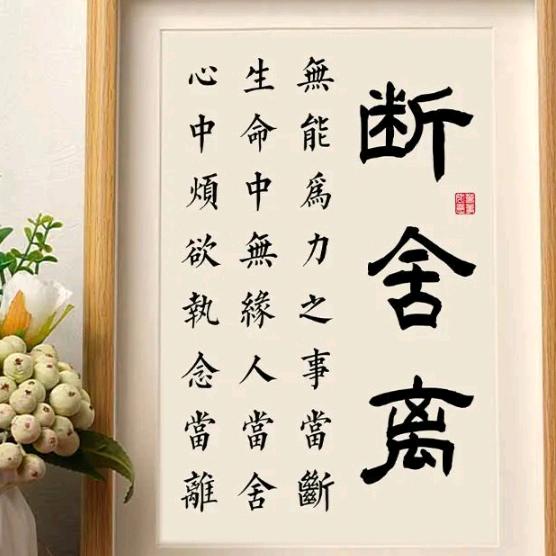 断舍离
無能為力之事當斷
生命中無緣人當舍
心中煩欲執念當離